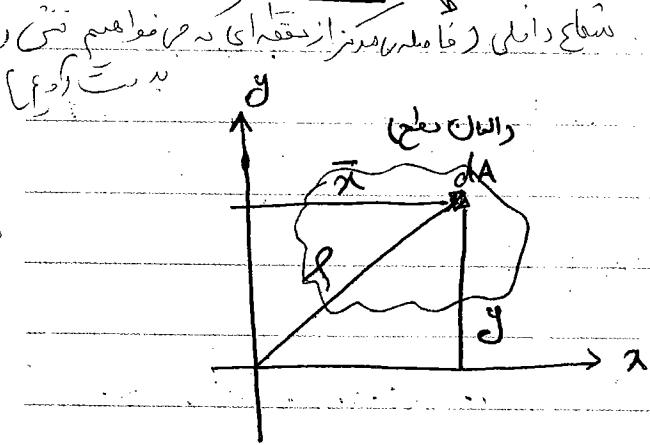 شعاع داخلی (فاصله‌ی مرکز از نقطه‌ای که می‌خواهیم تنش را
بدست آوریم)
y
المان سطح
x̄
dA
ρ
y
x